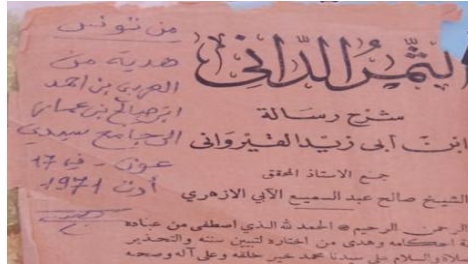 من تونس
هدية من
العربي بن احمد
ابن صالح بن عماره
الى جامع سيدي
عون - في 17
أوت 1971
الثمر الدانى
شرح رسالة
ابن أبى زيد القيروانى
جمع الاستاذ المحقق
الشيخ صالح عبد السميع الآبي الازهري
الرحمن الرحيم الحمد لله الذي اصطفى من عباده
احكامه وهدى من اختاره لتبيين سننه والتحذير
والسلام على سيدنا محمد خير خلقه وعلى آله وصحبه